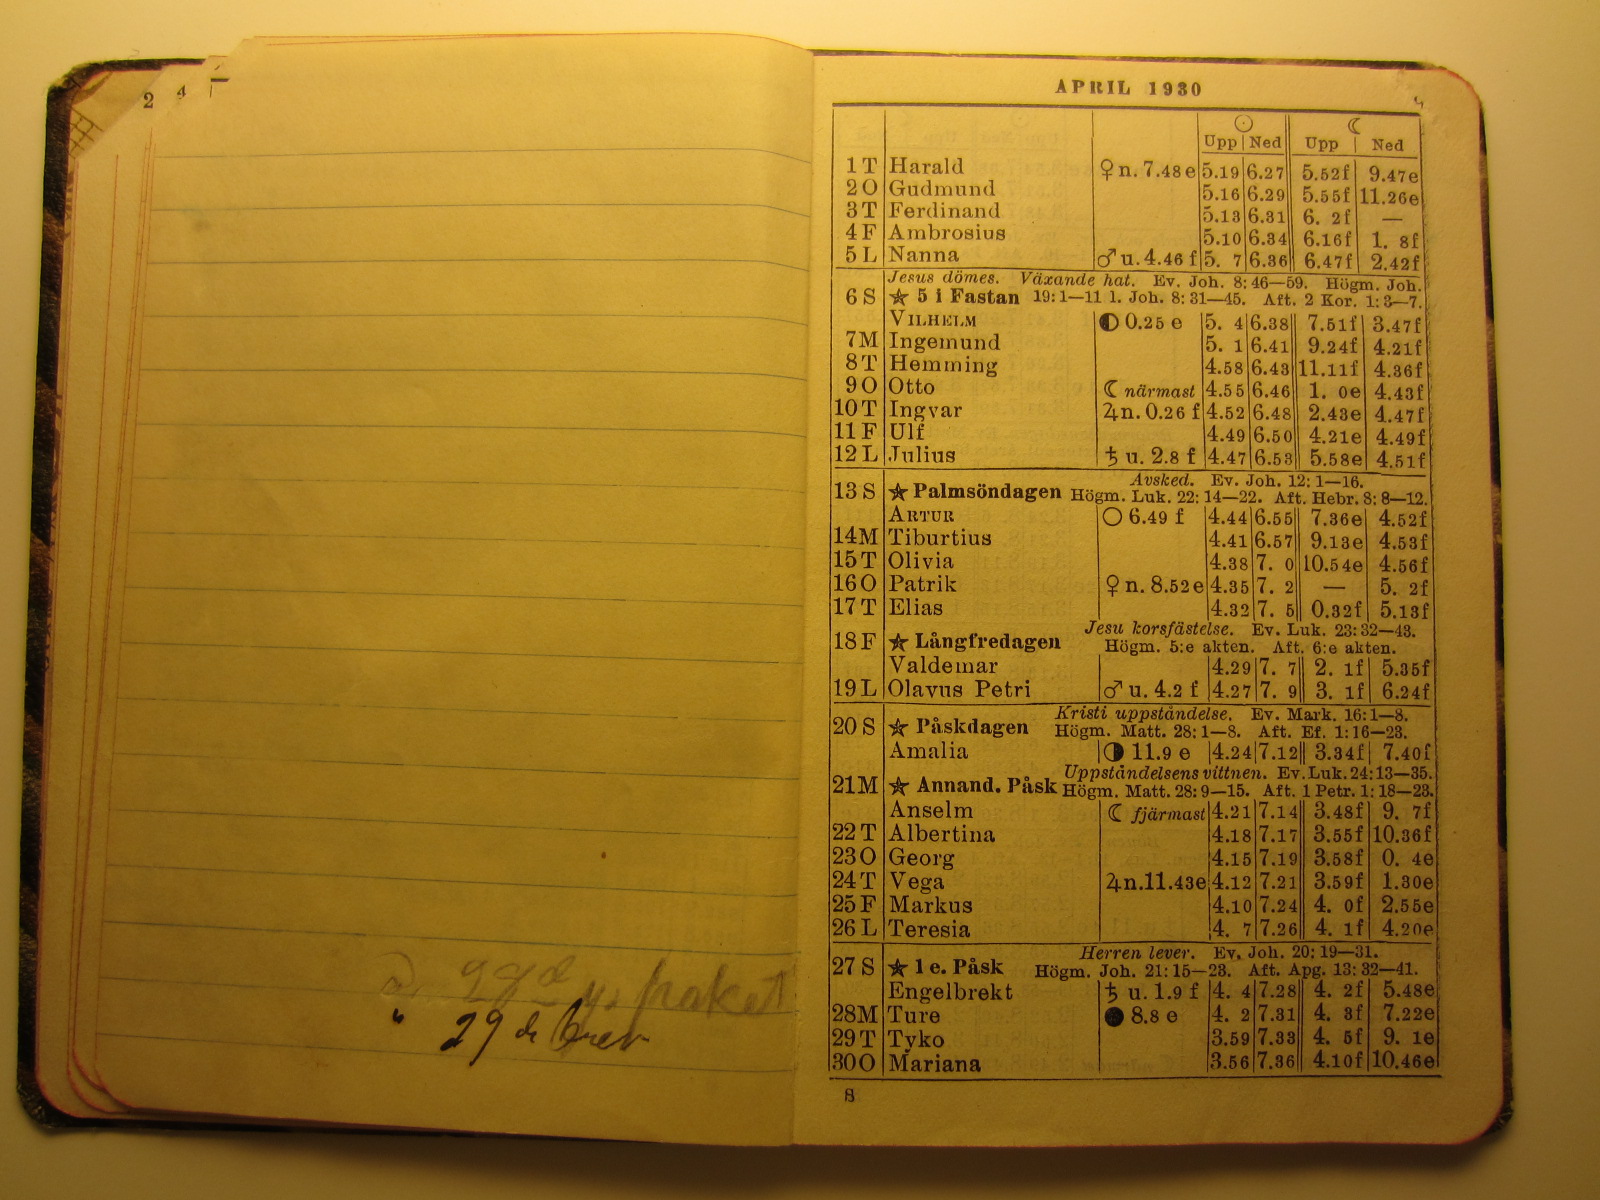 2 4
paket
" 29 de brev
APRIL 1930
Upp Ned Upp Ned
1 T Harald ♀ n. 7.48 e 5.19 6.27 5.52f 9.47e
2 O Gudmund 5.16 6.29 5.55f 11.26e
3 T Ferdinand 5.13 6.31 6. 2f —
4 F Ambrosius 5.10 6.34 6.16f 1. 8f
5 L Nanna ♂ u. 4.46 f 5. 7 6.36 6.47f 2.42f
Jesus dömes. Växande hat. Ev. Joh. 8: 46—59. Högm. Joh.
6 S ★ 5 i Fastan 19: 1—11 1. Joh. 8: 31—45. Aft. 2 Kor. 1: 3—7.
VILHELM ◐ 0.25 e 5. 4 6.38 7.51f 3.47f
7 M Ingemund 5. 1 6.41 9.24f 4.21f
8 T Hemming 4.58 6.43 11.11f 4.36f
9 O Otto ☾ närmast 4.55 6.46 1. 0e 4.43f
10 T Ingvar ♃ n. 0.26 f 4.52 6.48 2.43e 4.47f
11 F Ulf 4.49 6.50 4.21e 4.49f
12 L Julius ♄ u. 2.8 f 4.47 6.53 5.58e 4.51f
Avsked. Ev. Joh. 12: 1—16.
13 S ★ Palmsöndagen Högm. Luk. 22: 14—22. Aft. Hebr. 8: 8—12.
ARTUR ○ 6.49 f 4.44 6.55 7.36e 4.52f
14 M Tiburtius 4.41 6.57 9.13e 4.53f
15 T Olivia 4.38 7. 0 10.54e 4.56f
16 O Patrik ♀ n. 8.52e 4.35 7. 2 — 5. 2f
17 T Elias 4.32 7. 5 0.32f 5.13f
Jesu korsfästelse. Ev. Luk. 23: 32—43.
18 F ★ Långfredagen Högm. 5:e akten. Aft. 6:e akten.
Valdemar 4.29 7. 7 2. 1f 5.35f
19 L Olavus Petri ♂ u. 4.2 f 4.27 7. 9 3. 1f 6.24f
Kristi uppståndelse. Ev. Mark. 16: 1—8.
20 S ★ Påskdagen Högm. Matt. 28: 1—8. Aft. Ef. 1: 16—23.
Amalia ◑ 11.9 e 4.24 7.12 3.34f 7.40f
Uppståndelsens vittnen. Ev. Luk. 24: 13—35.
21 M ★ Annand. Påsk Högm. Matt. 28: 9—15. Aft. 1 Petr. 1: 18—23.
Anselm ☾ fjärmast 4.21 7.14 3.48f 9. 7f
22 T Albertina 4.18 7.17 3.55f 10.36f
23 O Georg 4.15 7.19 3.58f 0. 4e
24 T Vega ♃ n. 11.43e 4.12 7.21 3.59f 1.30e
25 F Markus 4.10 7.24 4. 0f 2.55e
26 L Teresia 4. 7 7.26 4. 1f 4.20e
Herren lever. Ev. Joh. 20: 19—31.
27 S ★ 1 e. Påsk Högm. Joh. 21: 15—23. Aft. Apg. 13: 32—41.
Engelbrekt ♄ u. 1.9 f 4. 4 7.28 4. 2f 5.48e
28 M Ture ● 8.8 e 4. 2 7.31 4. 3f 7.22e
29 T Tyko 3.59 7.33 4. 5f 9. 1e
30 O Mariana 3.56 7.36 4.10f 10.46e
8